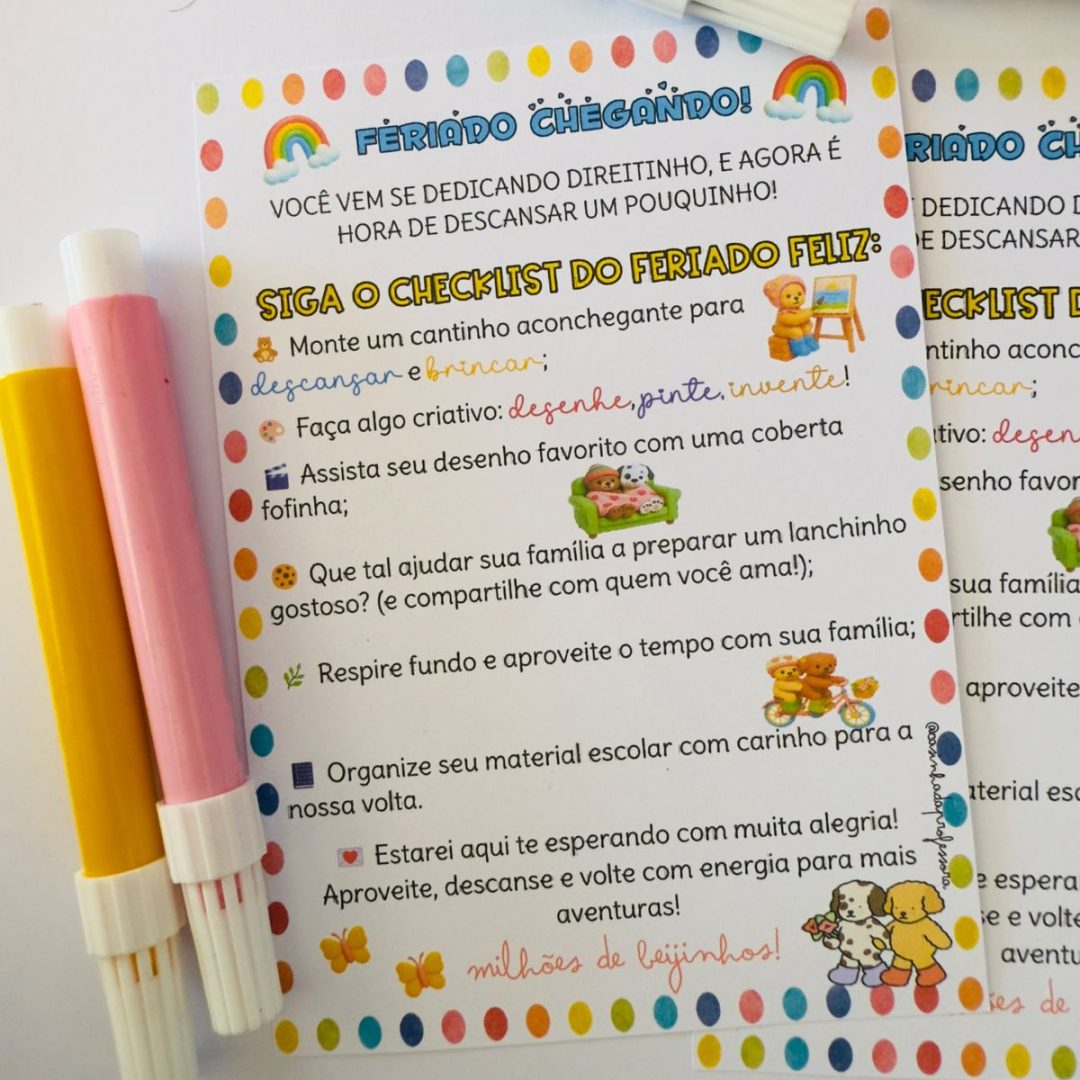 FERIADO CHEGANDO!
VOCÊ VEM SE DEDICANDO DIREITINHO, E AGORA É
HORA DE DESCANSAR UM POUQUINHO!
SIGA O CHECKLIST DO FERIADO FELIZ:
Monte um cantinho aconchegante para
descansar e brincar;
Faça algo criativo: desenhe, pinte, invente!
Assista seu desenho favorito com uma coberta
fofinha;
Que tal ajudar sua família a preparar um lanchinho
gostoso? (e compartilhe com quem você ama!);
Respire fundo e aproveite o tempo com sua família;
Organize seu material escolar com carinho para a
nossa volta.
Estarei aqui te esperando com muita alegria!
Aproveite, descanse e volte com energia para mais
aventuras!
milhões de beijinhos!
@casinhadaprofessora
RIADO CH
DEDICANDO D
E DESCANSAR
ECKLIST D
ntinho aconc
rincar;
tivo: desen
senho favor
sua família
rtilhe com
aproveite
aterial esc
e espera
e e volte
aventu
es de